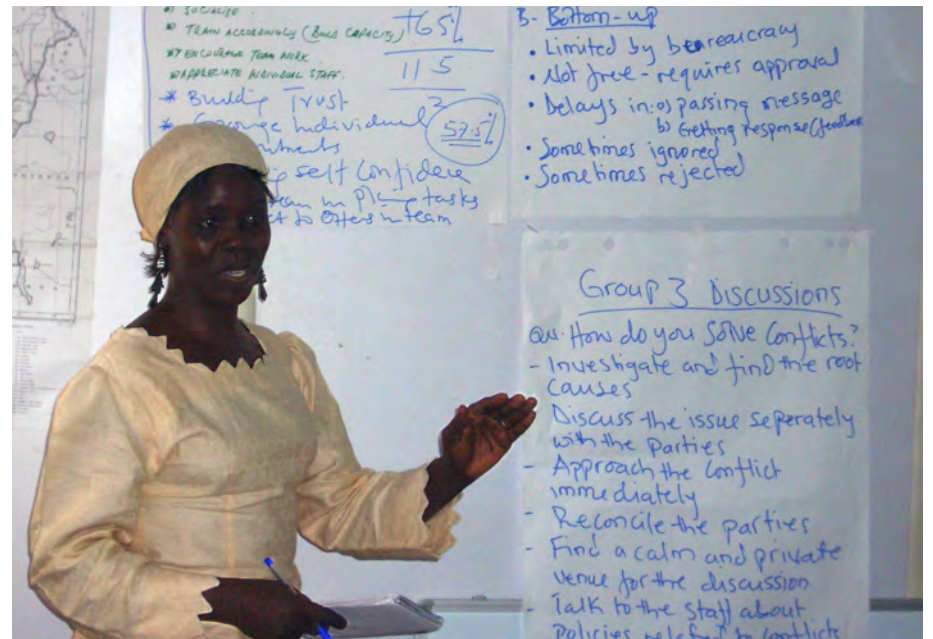 • SOCIALIZE.
• TRAIN ACCORDINGLY (BUILD CAPACITY)
** ENCOURAGE TEAM WORK.
APPRECIATE INDIVIDUAL STAFF.
* Building Trust
* Individual
self Confidece
in tasks
to in team
+65%
115
2
57.5%
B- Bottom-up
• Limited by beareaucracy
• Not free - requires approval
• Delays in: a) passing message
b) Getting response (feedback
• Sometimes ignored
• Sometimes rejected
Group 3 Discussions
Qn. How do you Solve Conflicts?
- Investigate and find the root
causes
Discuss the issue seperately
with the Parties
- Approach the Conflict
immediately
- Reconcile the parties
- Find a calm and private
venue for the discussion
- Talk to the staff about
Policies related to conflicts